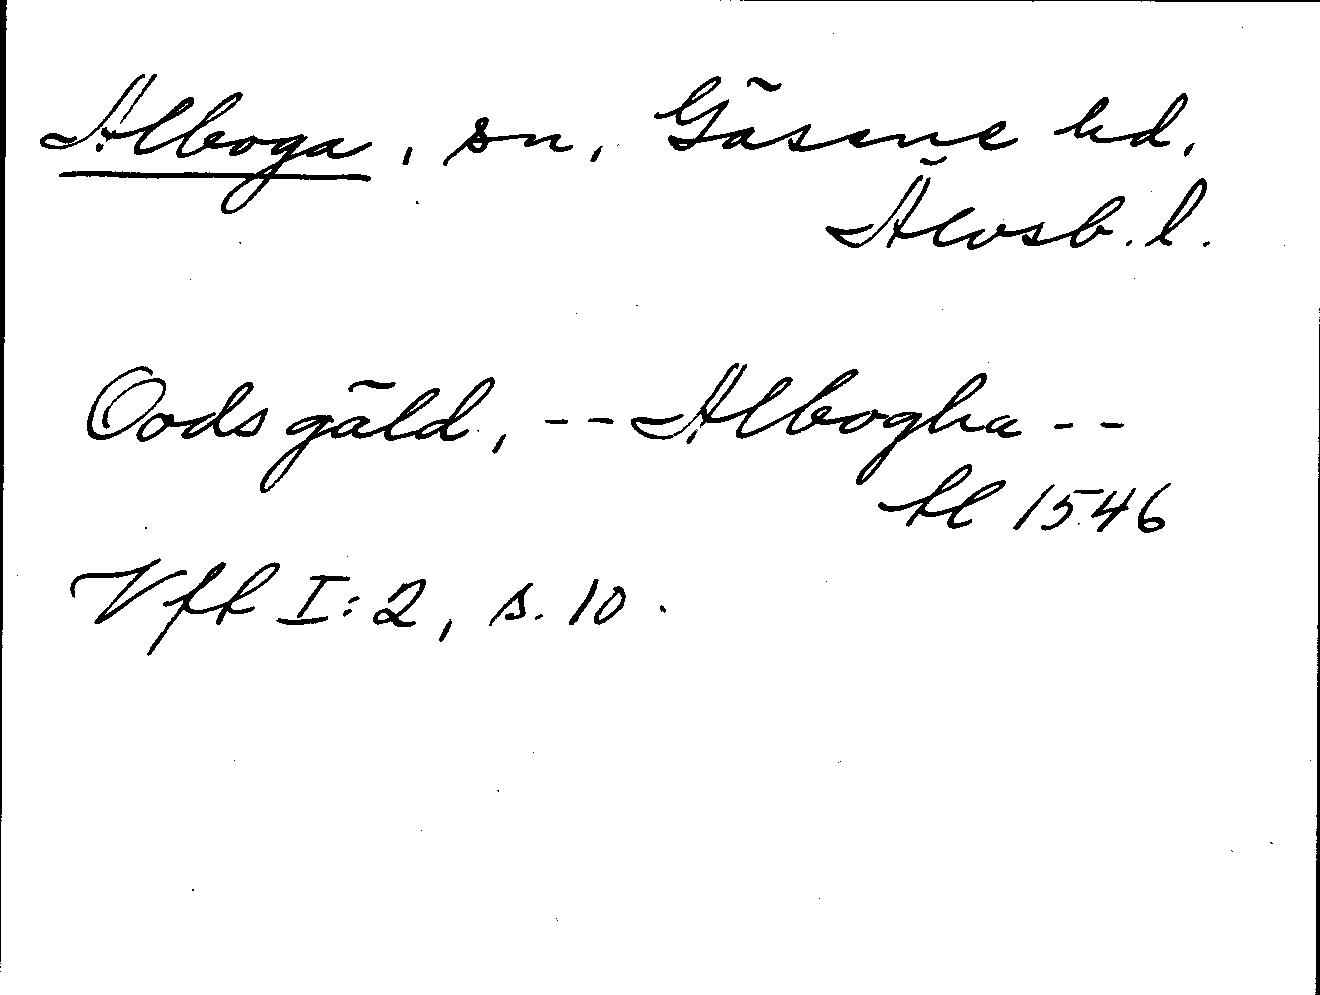 Alboga, sn, Gäsene hd,
Älvsb. l.
Oods gäld, -- Albogha --
hl 1546
Vfl I:2, s. 10.